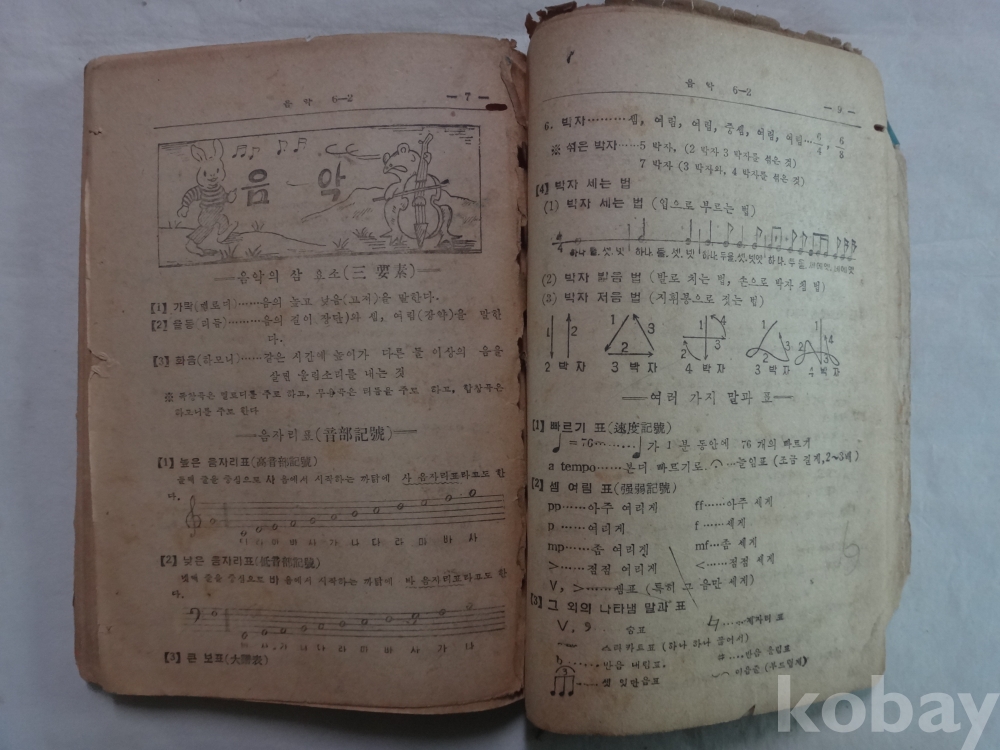 음 악 6-2
— 7 —
음 악
음악의 삼 요소(三 要素)
[1] 가락(멜로디)……음의 높고 낮음(고저)을 말한다.
[2] 율동(리듬)………음의 길이(장단)와 셈, 여림(강약)을 말한
다.
[3] 화음(하모니)……같은 시간에 높이가 다른 둘 이상의 음을
울림소리를 내는 것
※ 주로 하고, 리듬을 주로 하고, 합창곡은
하모니를 주로 한다
음자리표(音部記號)
[1] 높은 음자리표(高音部記號)
둘째 줄을 중심으로 사 음에서 시작하는 까닭에 사 음자리표라고도 한
다.
나 다 라 마 바 사
[2] 낮은 음자리표(低音部記號)
넷째 줄을 중심으로 바 음에서 시작하는 까닭에 바 음자리표라고도 한
다.
라 마 바 사 가 나
[3] 큰 보표(大譜表)
음 악 6-2
— 9 —
6. 박자………셈, 여림, 여림, 중셈, 여림, 여림…6/4, 6/8
※ 섞은 박자……5 박자, (2 박자 3 박자를 섞은 것)
7 박자 (3 박자와, 4 박자를 섞은 것)
[4] 박자 세는 법
(1) 박자 세는 법 (입으로 부르는 법)
4/4
하나 둘, 셋, 넷 하나, 둘, 셋, 넷
(2) 박자 밟음 법 (발로 치는 법, 손으로 박자 침 법)
(3) 박자 저음 법 (지휘봉으로 젓는 법)
1 2 1 3 2 1 4 2 3 1 3 2 1 4 2 3
2 박 자 3 박 자 4 박 자 3 박 자 4 박 자
여러 가지 말과 표
[1] 빠르기 표(速度記號)
♩=76………♩가 1 분 동안에 76 개의 빠르기
a tempo……본디 빠르기로. 𝄐…늘임표 (조금 길게, 2~3배)
[2] 셈 여림 표(强弱記號)
pp……아주 여리게 ff……아주 세게
p……여리게 f……세게
mp……좀 여리게 mf…좀 세게
>……점점 여리게 <……점점 세게
V, >……셈표 (특히 그 음만 세게)
[3] 그 외의 나타냄 말과 표
V, ……숨표 ……제자리 표
……스타카토표 (하나 하나 끊어서)
♭……반음 내림표. ♯……반음 올림표
……셋 잇단음표 ……이음줄 (부드럽게)
kobay